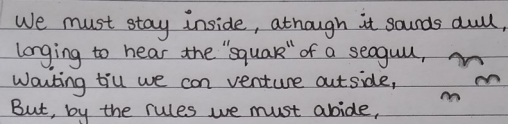 We must stay inside, athough it sounds dull,
longing to hear the "squak" of a seagull,
Waiting till we can venture outside,
But, by the rules we must abide,